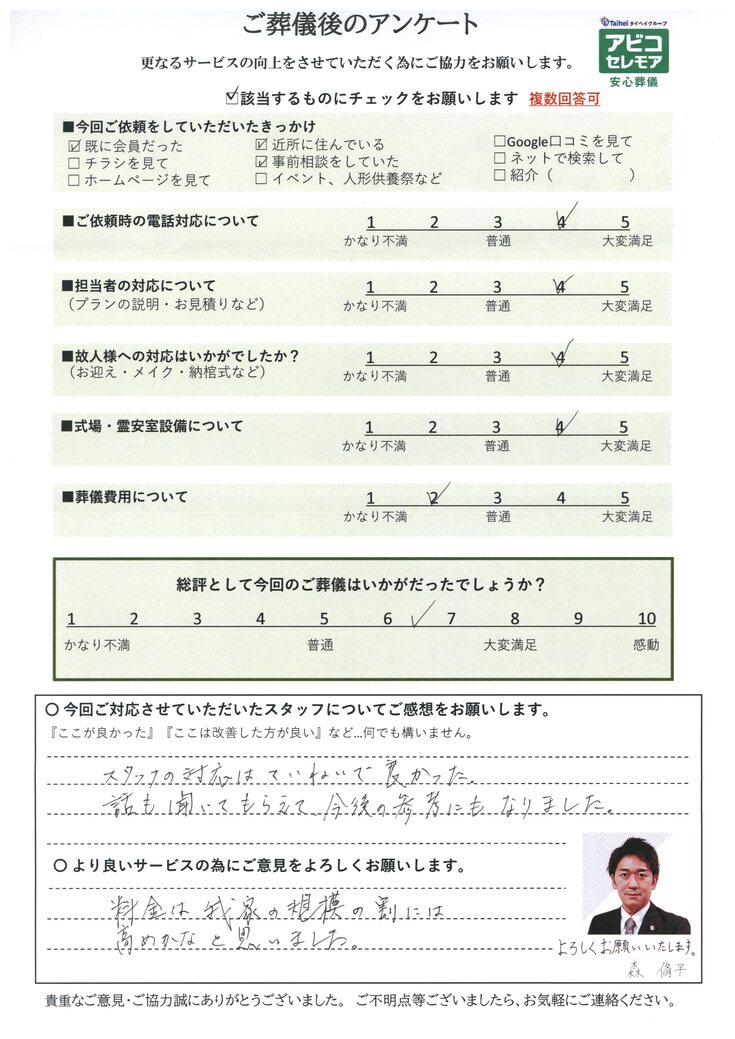 ご葬儀後のアンケート
Taihei タイヘイグループ
アビコ
セレモア
安心葬儀
更なるサービスの向上をさせていただく為にご協力をお願いします。
☑該当するものにチェックをお願いします 複数回答可
■今回ご依頼をしていただいたきっかけ
☑ 既に会員だった ☑ 近所に住んでいる □Google口コミを見て
□ チラシを見て ☑ 事前相談をしていた □ ネットで検索して
□ ホームページを見て □ イベント、人形供養祭など □ 紹介（　　　　　）
■ご依頼時の電話対応について 1 2 3 4 5
かなり不満 普通 大変満足
■担当者の対応について 1 2 3 4 5
（プランの説明・お見積りなど） かなり不満 普通 大変満足
■故人様への対応はいかがでしたか？ 1 2 3 4 5
（お迎え・メイク・納棺式など） かなり不満 普通 大変満足
■式場・霊安室設備について 1 2 3 4 5
かなり不満 普通 大変満足
■葬儀費用について 1 2 3 4 5
かなり不満 普通 大変満足
総評として今回のご葬儀はいかがだったでしょうか？
1 2 3 4 5 6 ✓ 7 8 9 10
かなり不満 普通 大変満足 感動
○ 今回ご対応させていただいたスタッフについてご感想をお願いします。
『ここが良かった』『ここは改善した方が良い』など…何でも構いません。
スタッフの対応はていねいで良かった。
話も聞いてもらえて、今後の参考にもなりました。
○ より良いサービスの為にご意見をよろしくお願いします。
料金は我家の規模の割には
高めかなと思いました。
よろしくお願いいたします。
森 脩平
貴重なご意見・ご協力誠にありがとうございました。 ご不明点等ございましたら、お気軽にご連絡ください。